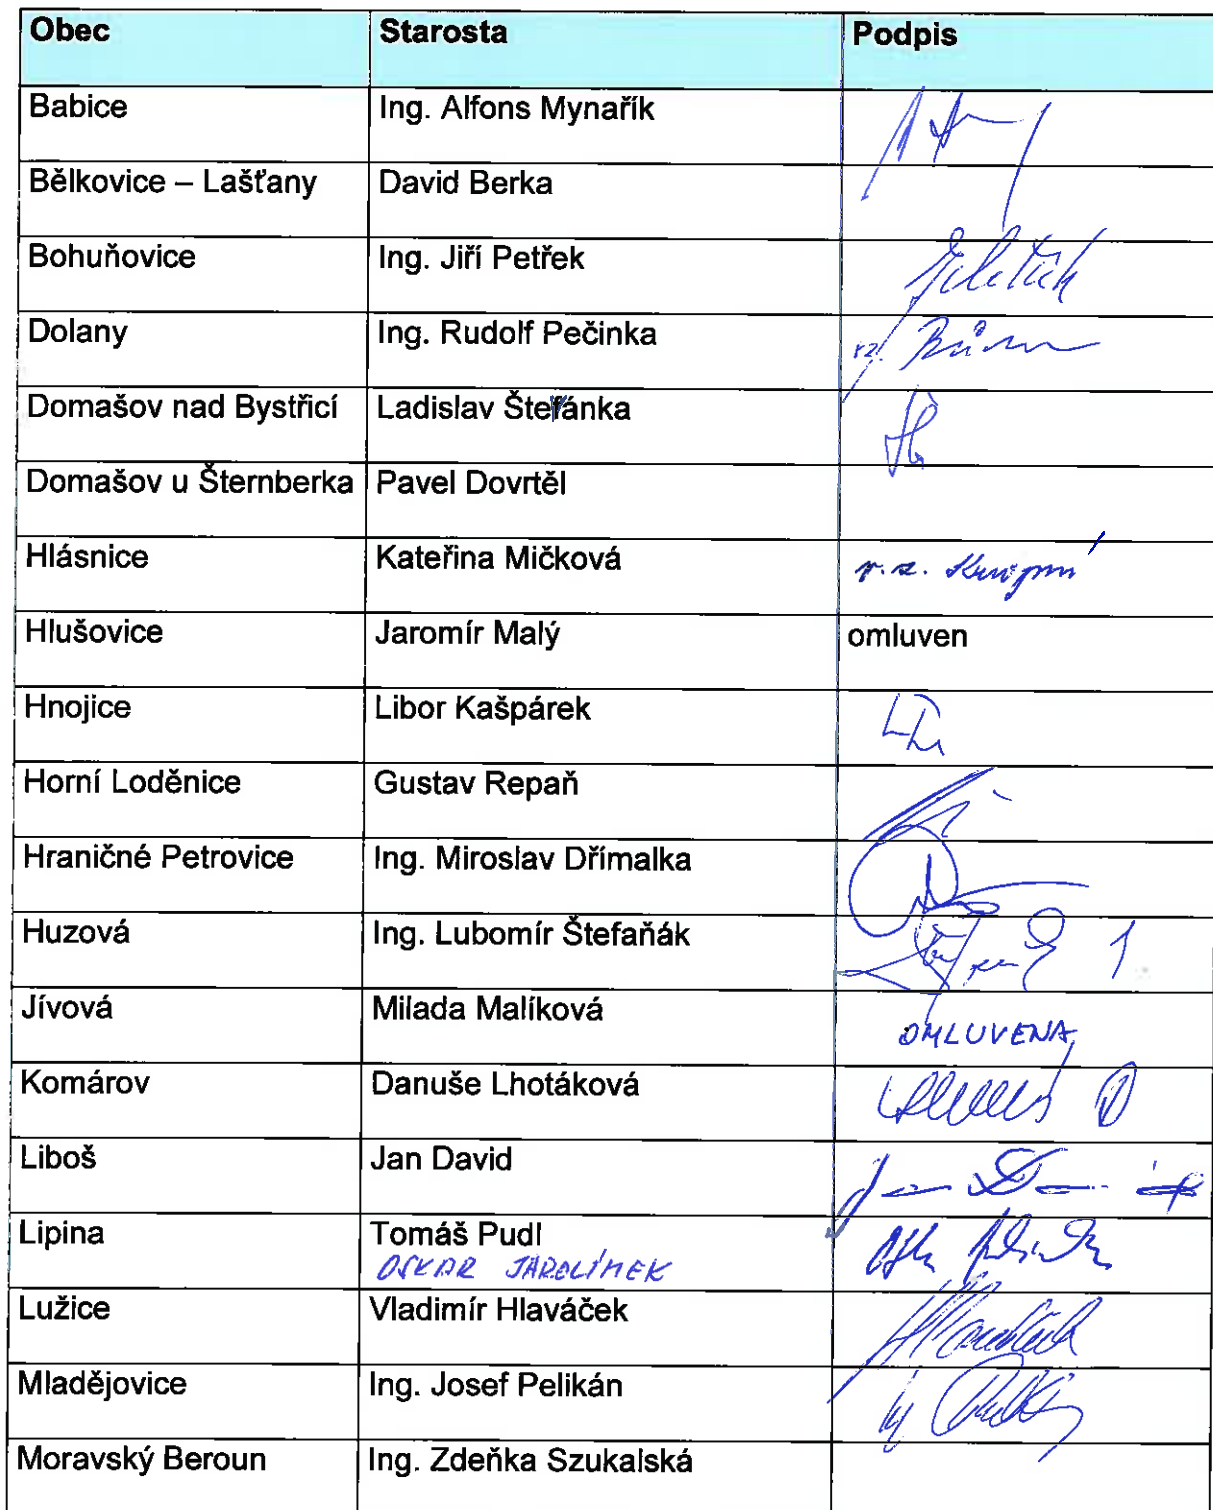 Obec Starosta Podpis
Babice Ing. Alfons Mynařík
Bělkovice – Lašťany David Berka
Bohuňovice Ing. Jiří Petřek
Dolany Ing. Rudolf Pečinka
Domašov nad Bystřicí Ladislav Štefánka
Domašov u Šternberka Pavel Dovrtěl
Hlásnice Kateřina Mičková
Hlušovice Jaromír Malý omluven
Hnojice Libor Kašpárek
Horní Loděnice Gustav Repaň
Hraničné Petrovice Ing. Miroslav Dřímalka
Huzová Ing. Lubomír Štefaňák
Jívová Milada Malíková OMLUVENA
Komárov Danuše Lhotáková
Liboš Jan David
Lipina Tomáš Pudl
OSKAR JAROLÍMEK
Lužice Vladimír Hlaváček
Mladějovice Ing. Josef Pelikán
Moravský Beroun Ing. Zdeňka Szukalská